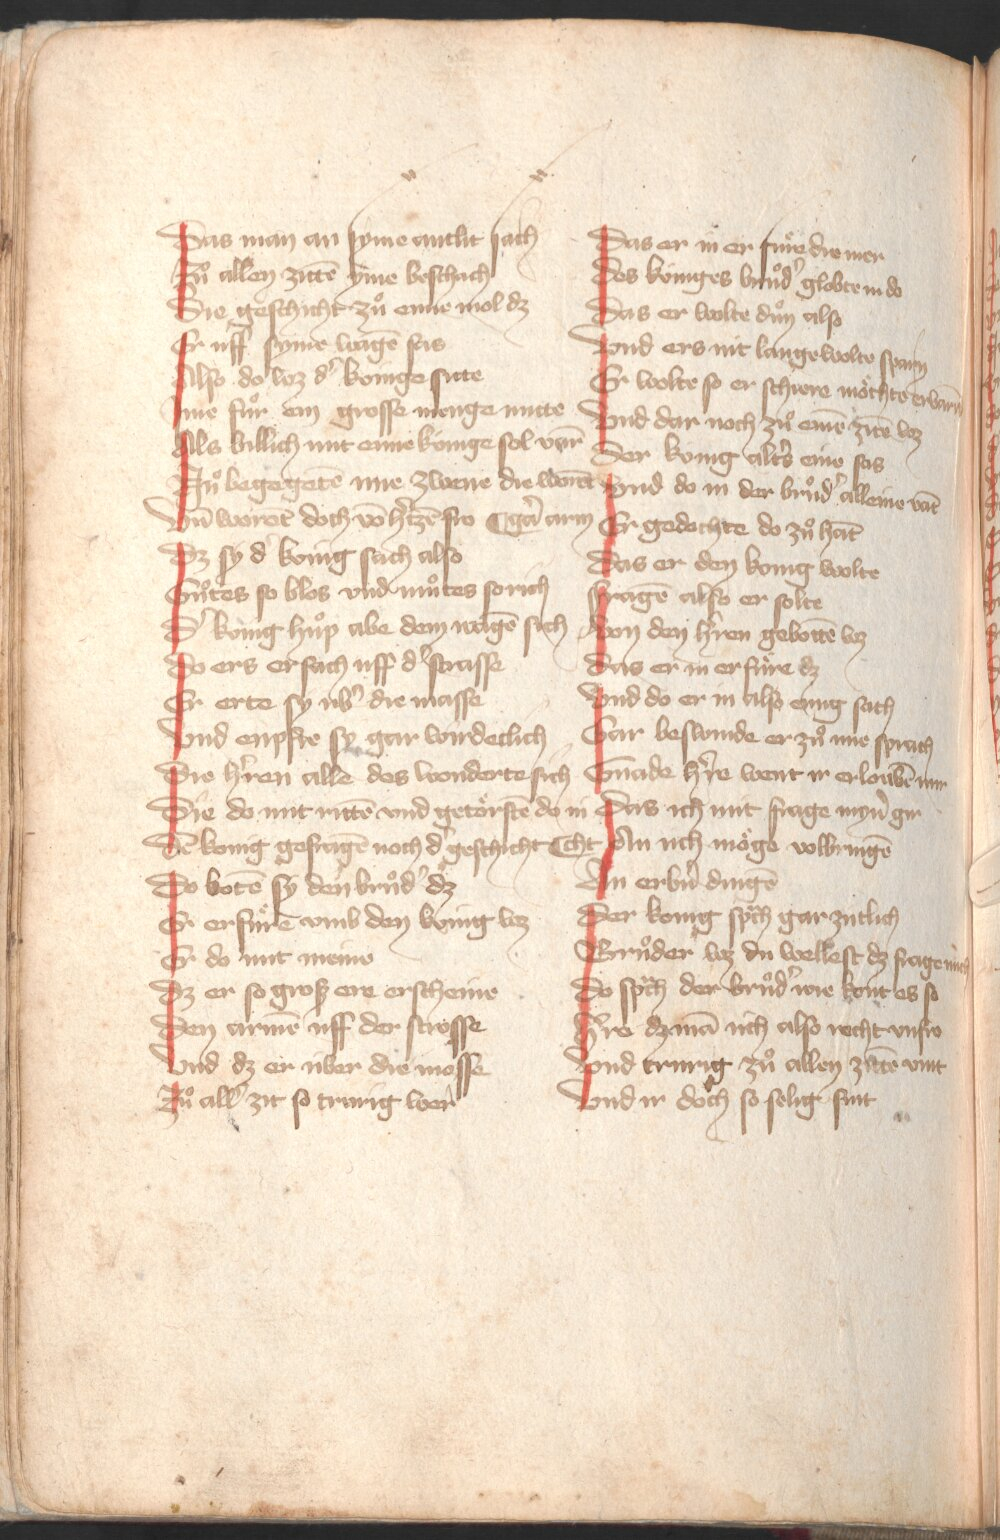 Das man an syme antlit sach
Zů allen zitē yme beschach
Die geschicht zů eime mol dz
Er uff syme wagē sas
Also do wz d' kōnige sitte
Ime fůr ein grosse menge mitte
Als billich mit eime kōnige sol varn
Nů begegetē ime zwene die worēt
Vn̄ worēt doch vō h'tzē fro ¶ gar arm
Dz sy d' kōnig sach also
Gůtes so blos vnd můtes so rich
D' kōnig hůp abe dem wagē sich
Do ers ersach uff d' strasse
Er erte sy üb' die masse
Vnd enpfie sy gar wirdeclich
Die h'ren alle des wonderte sich
Die do mit rittē vnd getörstē do in
Dē konig gefragē noch d' geschicht ¶ cht
Do botē sy den brůd' dz
Er erfüre vmb den kōnig wz
Er do mit meine
Dz er so grosz ere erscheine
Den armē uff der strosse
Vnd dz er über die mosse
Zů all' zit so trurig wer
Das er in er füre die mer
Des kōniges brůd' globte in do
Das er wolte důn also
Vnd ers nit lange wolte sparn
Er wolte so er schiere möchte ervarn
Vnd dar noch zů einē zitē wz
Der kōnig alters eine sas
Vnd do in der brůd' alleine vāt
Er gedochte do zů hāt
Das er den konig wolte
Fragē also er solte
Von den h'ren gebottē wz
Das er in erfüre dz
Vnd do er in also einig sach
Gar beswinde er zů ime sprach
Gnade h're went ir erloubē mir
Das ich mit frage myn' gir
An uch möge volbringē
An erbern dingē
Der konig sp̄ch gar zitlich
Brůder wz du wellest dz frage mich
Do sp̄ch der brůd' wie kōnt es so
H're dz mā uch also recht vnfro
Vnd trurig zů allen zitē vint
Vnd ir doch so selig sint